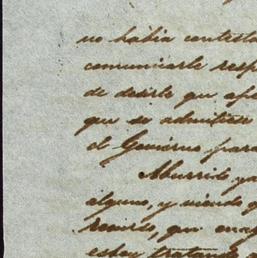 no había contesta
comunicarle resp
de decirle que ape
que se admitiese
el Gobierno para
Aburrido ya
alguno, y viendo q
que
estar tratando